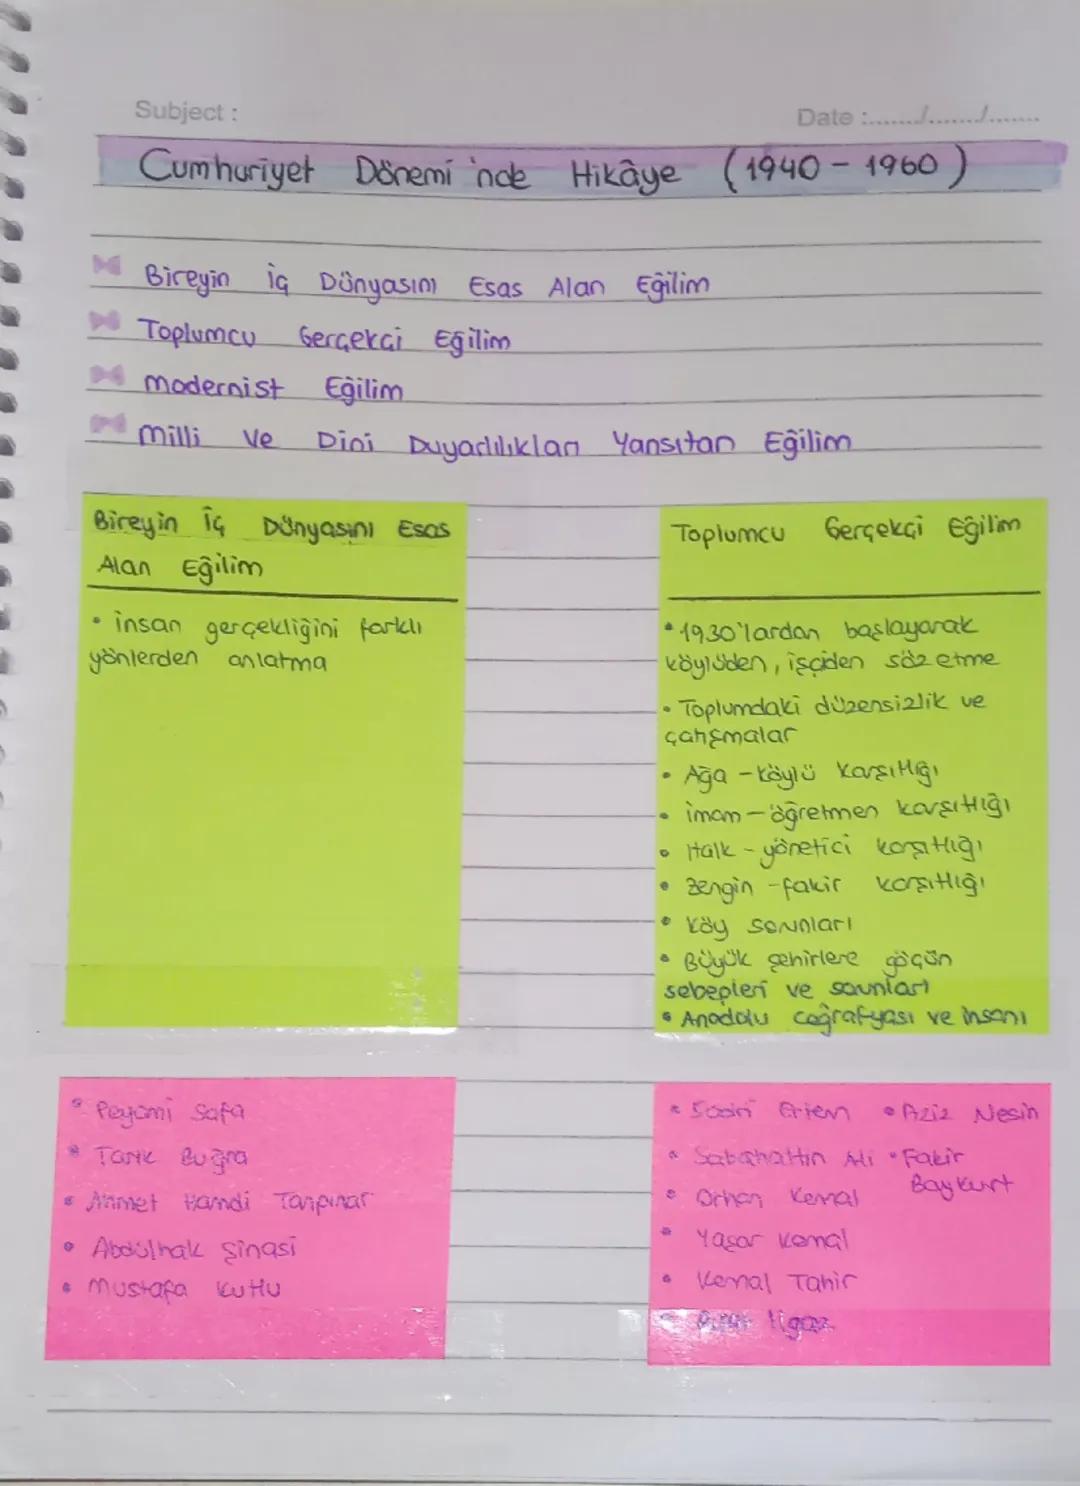 Subject :
Date :......./......./.......
Cumhuriyet Dönemi'nde Hikâye (1940-1960)
Bireyin İç Dünyasını Esas Alan Eğilim
Toplumcu Gerçekçi Eğilim
Modernist Eğilim
Milli ve Dini Duyarlılıkları Yansıtan Eğilim
Bireyin İç Dünyasını Esas
Alan Eğilim
• insan gerçekliğini farklı
yönlerden anlatma
Toplumcu Gerçekçi Eğilim
• 1930'lardan başlayarak
köylüden, işçiden söz etme
• Toplumdaki düzensizlik ve
çatışmalar
• Ağa - köylü karşıtlığı
• imam - öğretmen karşıtlığı
• Halk - yönetici karşıtlığı
• Zengin - fakir karşıtlığı
• Köy sorunları
• Büyük şehirlere göçün
sebepleri ve sorunları
• Anadolu coğrafyası ve insanı
• Peyami Safa
• Tarık Buğra
• Ahmet Hamdi Tanpınar
• Abdülhak Şinasi
• Mustafa Kutlu
• Sadri Ertem • Aziz Nesin
• Sabahattin Ali • Fakir
Baykurt
• Orhan Kemal
• Yaşar Kemal
• Kemal Tahir
• Ilgaz